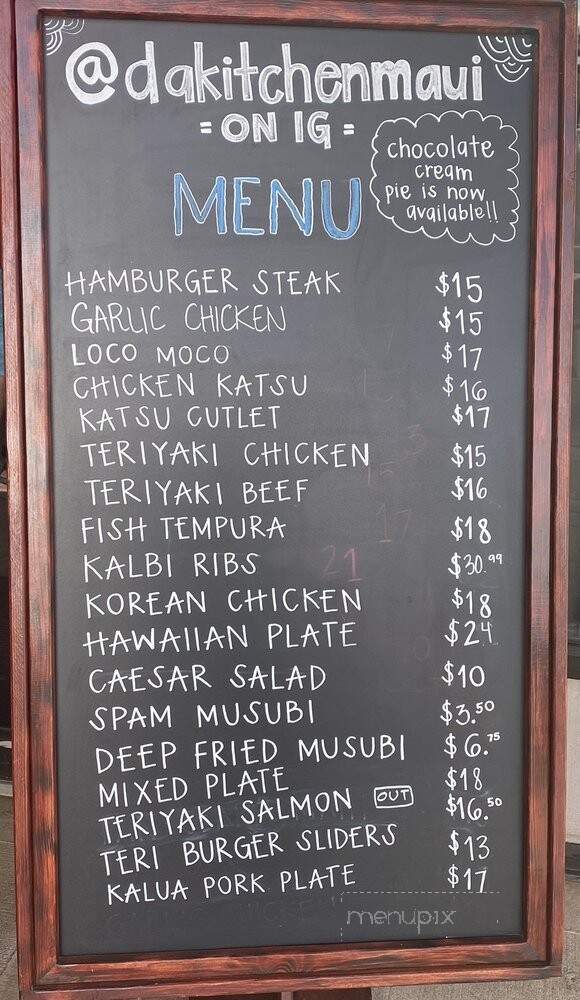 @dakitchenmaui
= ON IG =
chocolate
cream
pie is now
available!!
MENU
HAMBURGER STEAK $15
GARLIC CHICKEN $15
LOCO MOCO $17
CHICKEN KATSU $16
KATSU CUTLET $17
TERIYAKI CHICKEN $15
TERIYAKI BEEF $16
FISH TEMPURA $18
KALBI RIBS $30.99
KOREAN CHICKEN $18
HAWAIIAN PLATE $24
CAESAR SALAD $10
SPAM MUSUBI $3.50
DEEP FRIED MUSUBI $6.75
MIXED PLATE $18
TERIYAKI SALMON OUT $16.50
TERI BURGER SLIDERS $13
KALUA PORK PLATE $17
menupix